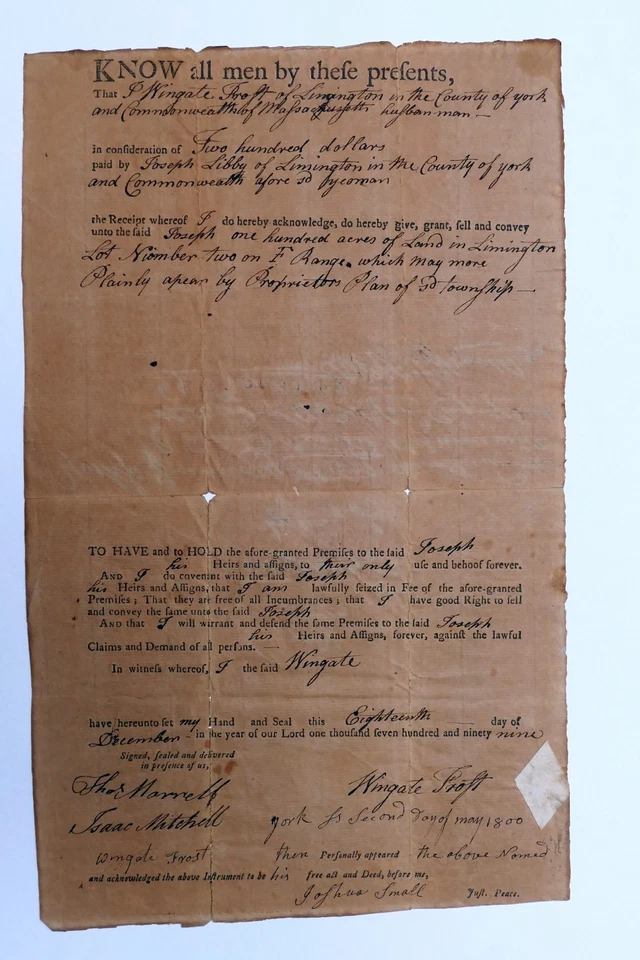 KNOW all men by theſe preſents,
That I Wingate Frost of Limington in the County of york
and Commonwealth of Massachusetts husbanman —
in conſideration of Two hundred dollars
paid by Joseph Libby of Limington in the County of york
and Commonwealth afore sd yeoman
the Receipt whereof I do hereby acknowledge, do hereby give, grant, ſell and convey
unto the ſaid Joseph one hundred acres of Land in Limington
Lot Niomber two on F Range which may more
Plainly apear by Proprietors Plan of sd township —
TO HAVE and to HOLD the afore-granted Premiſes to the ſaid Joseph
his Heirs and aſſigns, to their only uſe and behoof forever.
AND I do covenent with the ſaid Joseph
his Heirs and Aſſigns, that I am lawfully ſeized in Fee of the afore-granted
Premiſes; That they are free of all Incumbrances; that I have good Right to ſell
and convey the ſame unto the ſaid Joseph
AND that I will warrant and defend the ſame Premiſes to the ſaid Joseph
his Heirs and Aſſigns, forever, againſt the lawful
Claims and Demand of all perſons. —
In witneſs whereof, I the ſaid Wingate
have hereunto ſet my Hand and Seal this Eighteenth — day of
December - in the year of our Lord one thouſand ſeven hundred and ninety nine
Signed, ſealed and delivered
in preſence of us,
Thos Marrell Wingate Frost
Isaac Mitchell york ss Second Day of may 1800
Wingate Frost then Perſonally appeared the above Named
and acknowledged the above Inſtrument to be his free act and Deed, before me,
Joshua Small Juſt. Peace.